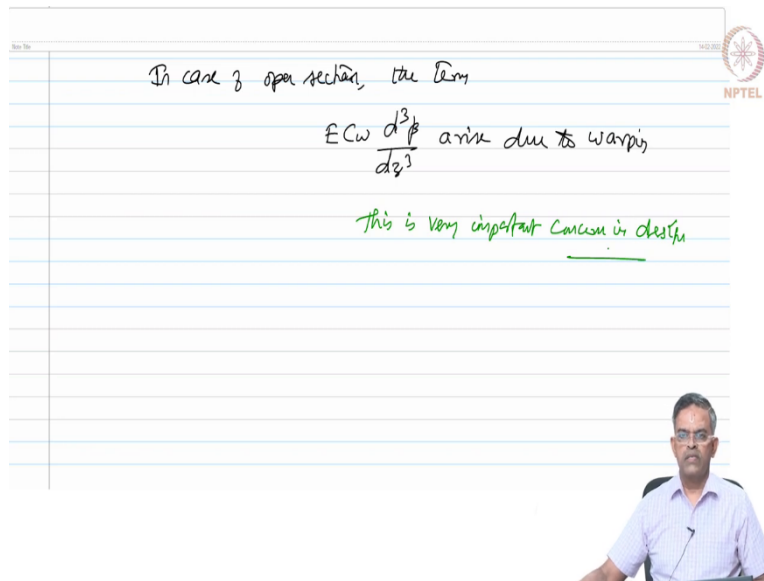 Note Title
14-02-2022
NPTEL
In case of open section, the term
ECw d³β/dz³ arise due to warping
This is very important concern in design